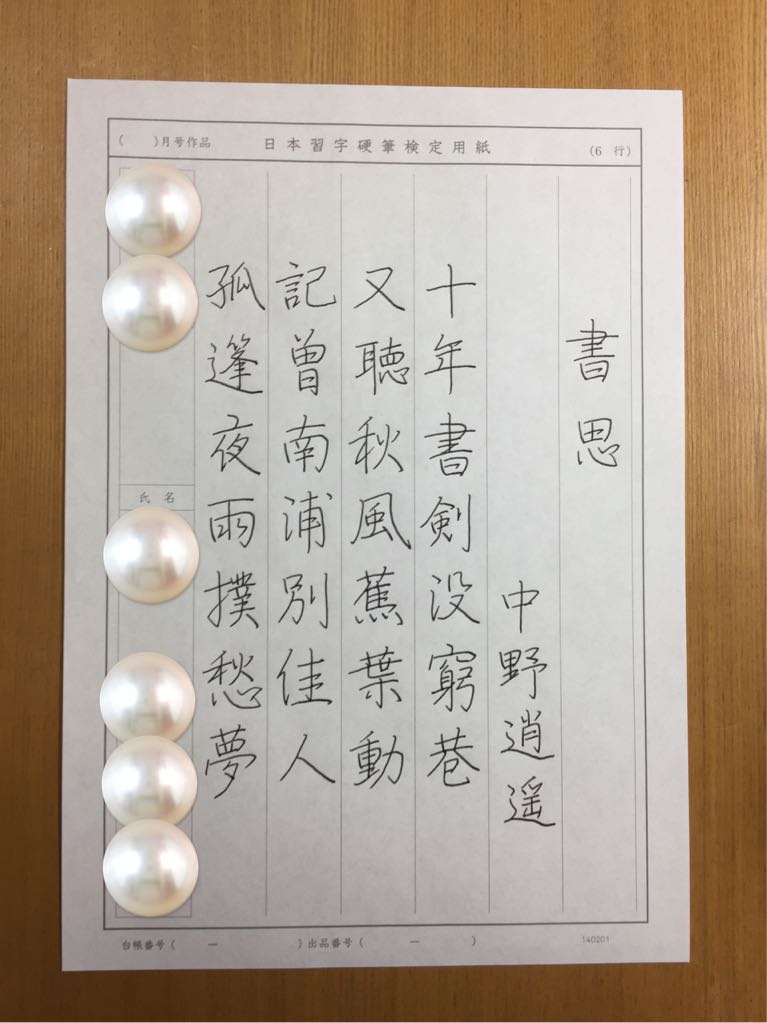 ( )月号作品 日本習字硬筆検定用紙 (6 行)
書思
中野逍遥
十年書剣没窮巷
又聴秋風蕉葉動
記曽南浦別佳人
孤篷夜雨撲愁夢
氏名
台帳番号( ー )出品番号( ー )
140201